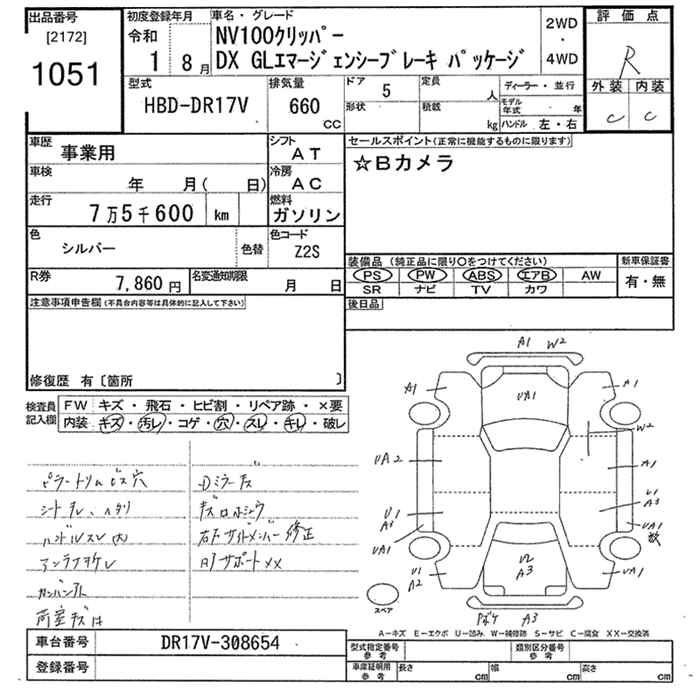 出品番号
[2172]
1051
初度登録年月
令和
1 8月
車名・グレード
NV100クリッパー
DX GLエマージェンシーブレーキ パッケージ
2WD
・
4WD
評価点
R
外装 内装
C C
型式
HBD-DR17V
排気量
660
CC
ドア
5
形状
定員
人
積載
kg
ディーラー・並行
モデル年式 年
ハンドル 左・右
車歴
事業用
シフト
AT
車検
年 月( 日)
冷房
AC
走行
7万5千600 km
燃料
ガソリン
色
シルバー
色替
色コード
Z2S
R券
7,860円
名変通知期限
月 日
セールスポイント(正常に機能するものに限ります)
☆Bカメラ
装備品 (純正品に限り○をつけてください)
PS PW ABS エアB AW
SR ナビ TV カワ
新車保証書
有・無
後日品
注意事項申告欄(不具合内容等は具体的に記入して下さい)
修復歴 有〔箇所 〕
検査員記入欄
FW キズ・飛石・ヒビ割・リペア跡・×要
内装 キズ・汚レ・コゲ・穴・スレ・キレ・破レ
ピラートリムビス穴
シートスレ、ヘタリ
ハンドルスレ
アンテナヲレ
右Fサイドメンバー修正
サポートXX
A1 W2
A1
UA1
A1
W2
UA2
A1
U1
A3
U1
UA1
UA1
数
U1
A2
U2
A3
UA1
A3
スペア
A−キズ E−エクボ U−凹み W−補修跡 S−サビ C−腐食 XX−交換済
車台番号
DR17V-308654
登録番号
型式指定番号
参考
類別区分番号
参考
車庫証明用
参考
長さ cm
幅 cm
高さ cm